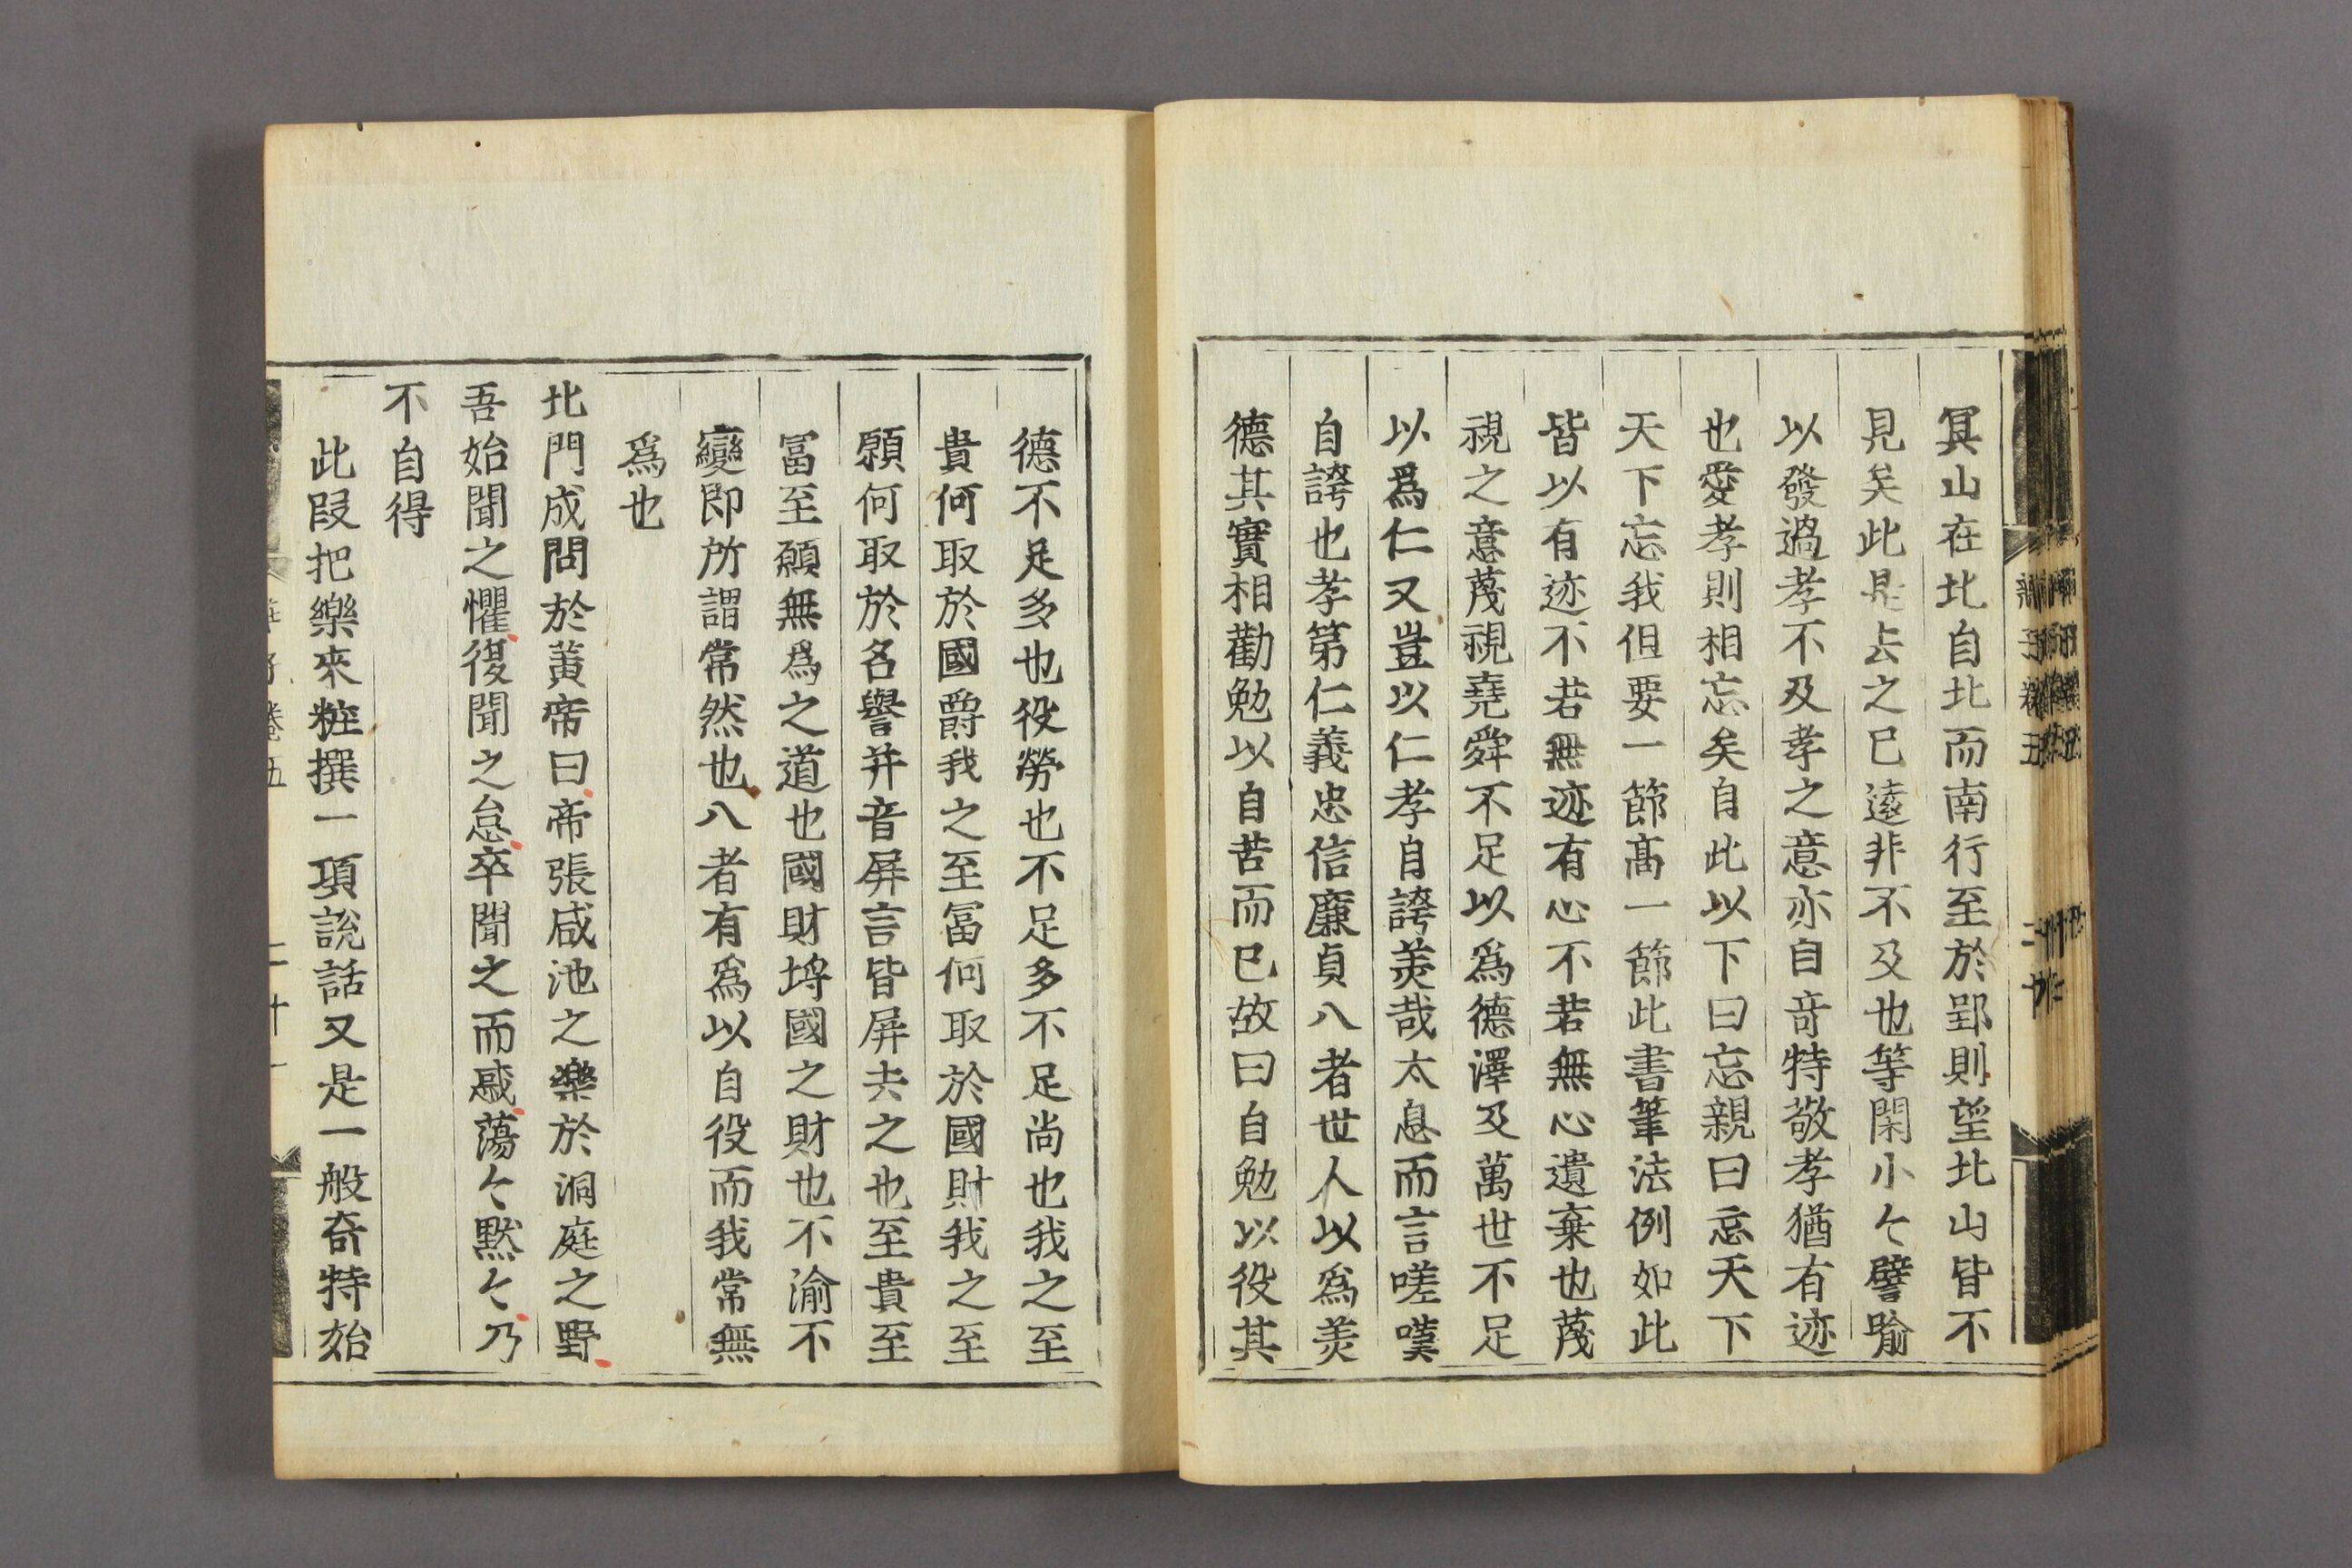 冥山在北自北而南行至於郢則望北山皆不
見矣此是去之已遠非不及也等閑小〻譬喻
以發過孝不及孝之意亦自竒特敬孝猶有迹
也愛孝則相忘矣自此以下曰忘親曰忘天下
天下忘我但要一節髙一節此書筆法例如此
皆以有迹不若無迹有心不若無心遺棄也蔑
視之意蔑視堯舜不足以爲德澤及萬世不足
以爲仁又豈以仁孝自誇羙哉太息而言嗟嘆
自誇也孝第仁義忠信廉貞八者世人以爲羙
德其實相勸勉以自苦而已故曰自勉以役其
德不足多也役勞也不足多不足尚也我之至
貴何取於國爵我之至冨何取於國財我之至
願何取於名譽并音屏言皆屏去之也至貴至
冨至願無爲之道也國財埓國之財也不渝不
變即所謂常然也八者有爲以自役而我常無
爲也
北門成問於黃帝曰帝張咸池之樂於洞庭之野
吾始聞之懼復聞之怠卒聞之而惑蕩〻默〻乃
不自得
此段把樂來粧撰一項說話又是一般奇特始
莊子卷五
二十一